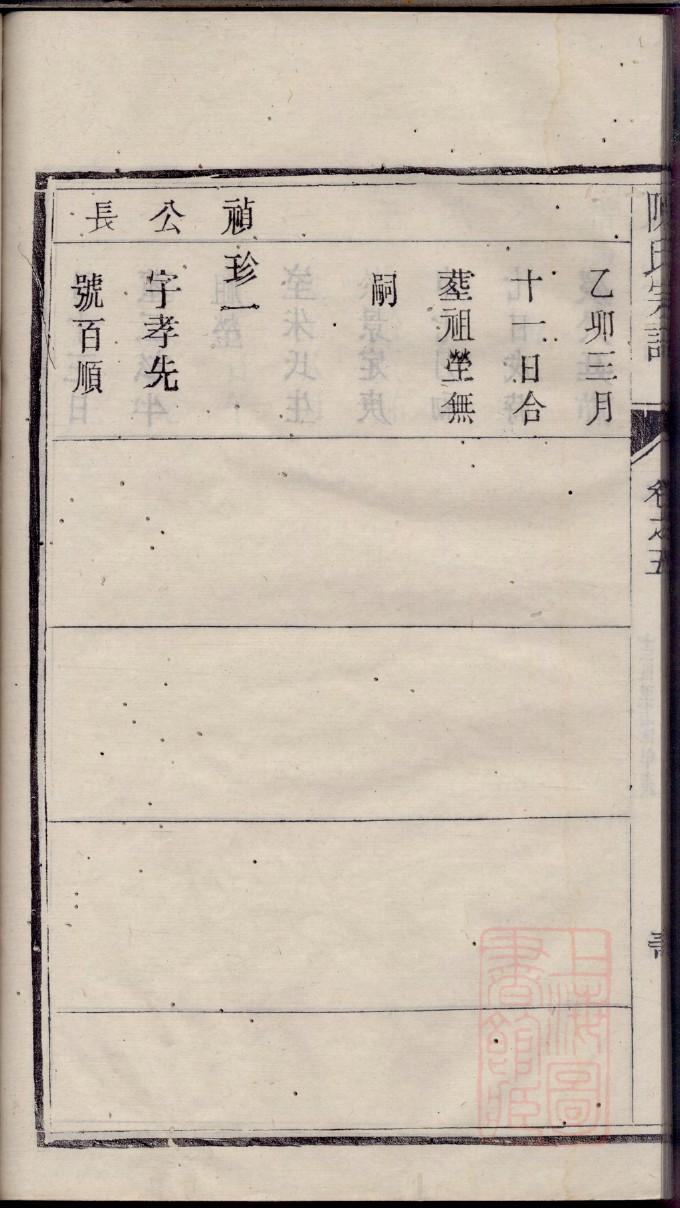 陳氏宗譜
卷之五
乙卯三月
十一日合
塟祖塋無
嗣
禎
珍一
公
字孝先
長
號百順
上海圖
書館藏